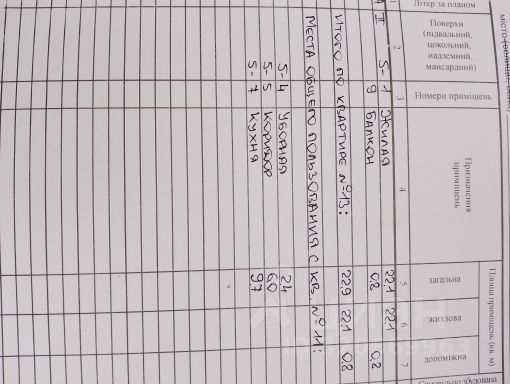 Літер за планом
Поверхи
(підвальний,
цокольний,
надземний,
мансардний)
Номери приміщень
Призначення
приміщень
Площа приміщень (кв. м)
загальна
житлова
допоміжна
1 2 3 4 5 6 7
А II 5-1 ЖИЛАЯ 22.1 22.1
9 БАЛКОН 0.8 0.8
ИТОГО ПО КВАРТИРЕ №13: 22.9 22.1 0.8
МЕСТА ОБЩЕГО ПОЛЬЗОВАНИЯ С КВ. №11:
5-4 УБОРНАЯ 2.4
5-5 КОРИДОР 6.0
5-7 КУХНЯ 9.7